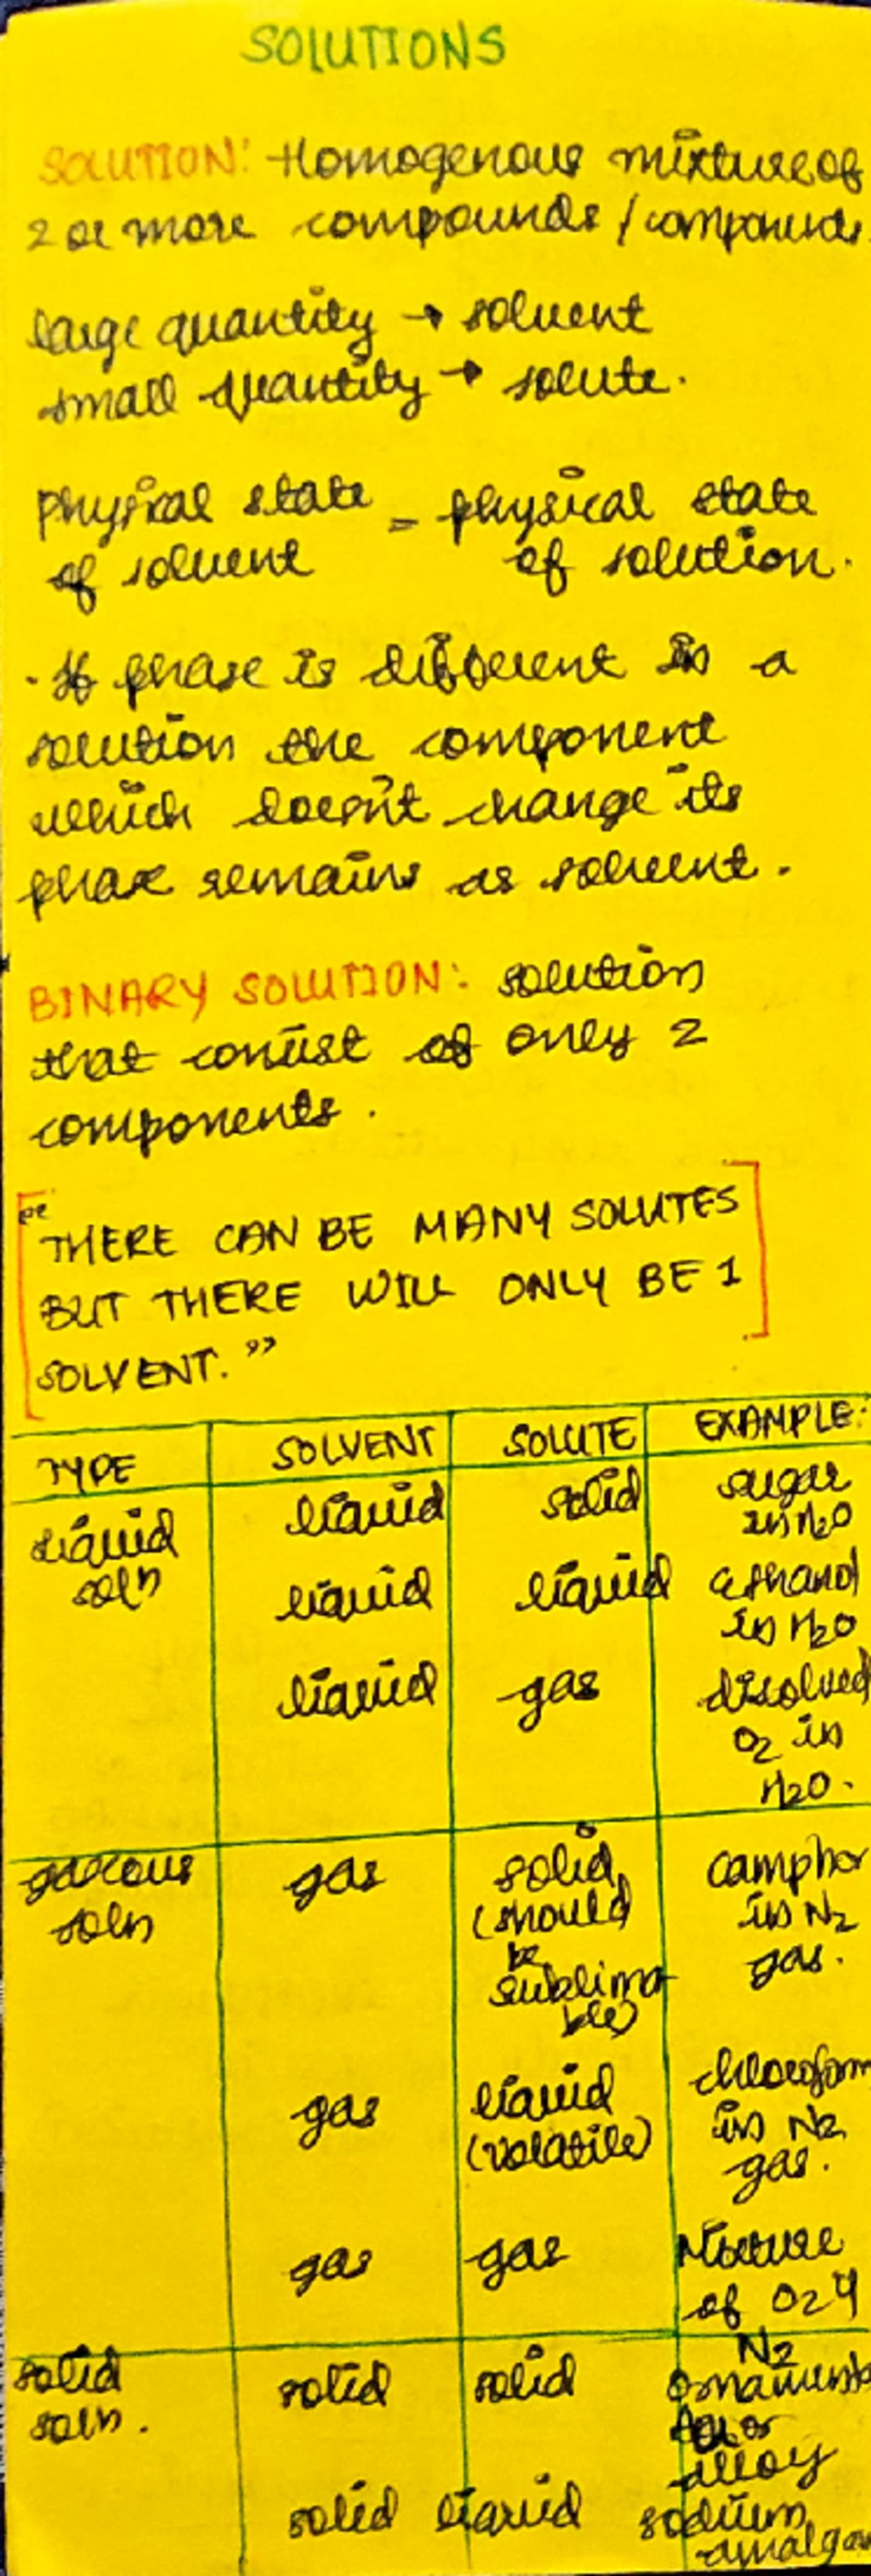 SOLUTIONS
SOLUTION: Homogenous mixture of
2 or more compounds / components
large quantity → solvent
small quantity → solute.
physical state = physical state
of solvent of solution.
. If phase is different in a
solution the component
which doesn't change its
phase remains as solvent.
BINARY SOLUTION: solution
that consist of only 2
components.
"THERE CAN BE MANY SOLUTES
BUT THERE WILL ONLY BE 1
SOLVENT."
TYPE SOLVENT SOLUTE EXAMPLE:
liquid soln liquid solid sugar in H2O
liquid liquid ethanol in H2O
liquid gas disolved O2 in H2O.
gaseous soln gas solid (should be sublimable) camphor in N2 gas.
gas liquid (volatile) chloroform in N2 gas.
gas gas Mixture of O2 4 N2
solid soln. solid solid ornaments or alloy
solid liquid sodium amalgam